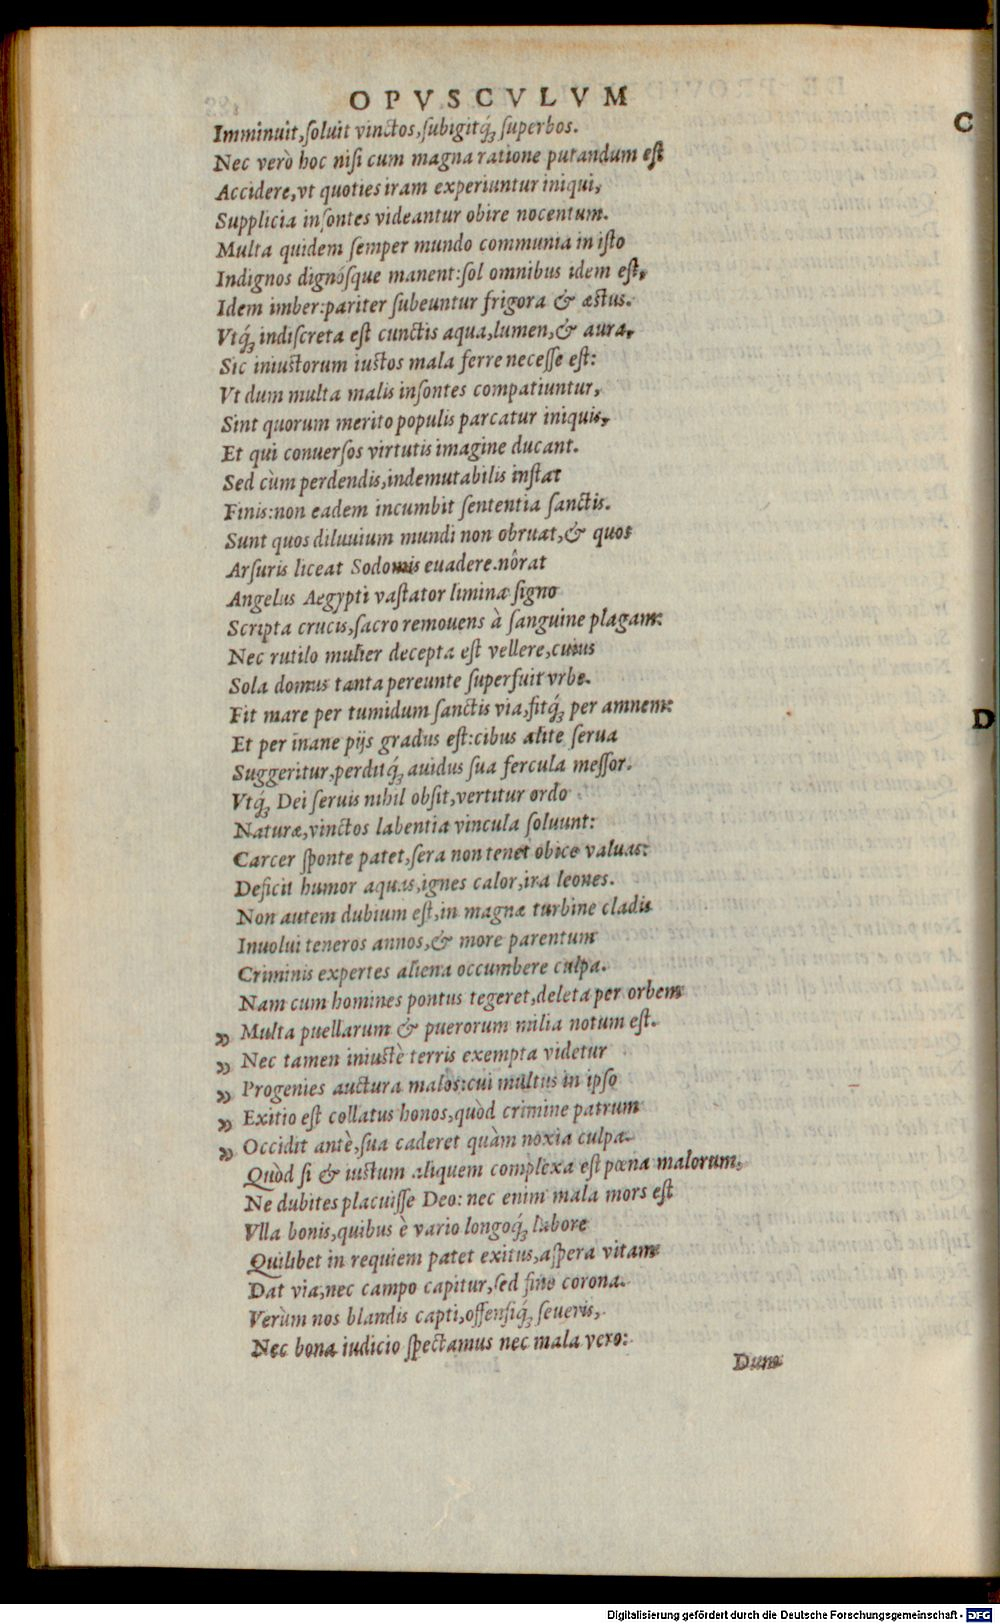 OPVSCVLVM
Imminuit,ſoluit vinctos,ſubigitq́ꝫ ſuperbos.
Nec verò hoc niſi cum magna ratione putandum eſt
Accidere,vt quoties iram experiuntur iniqui,
Supplicia inſontes videantur obire nocentum.
Multa quidem ſemper mundo communia in iſto
Indignos dignósque manent:ſol omnibus idem eſt,
Idem imber:pariter ſubeuntur frigora & æstus.
Vtq́ꝫ indiſcreta est cunctis aqua,lumen,& aura,
Sic iniustorum iustos mala ferre neceſſe est:
Vt dum multa malis inſontes compatiuntur,
Sint quorum merito populis parcatur iniquis,
Et qui conuerſos virtutis imagine ducant.
Sed cùm perdendis,indemutabilis inſtat
Finis:non eadem incumbit ſententia ſanctis.
Sunt quos diluuium mundi non obruat,& quos
Arſuris liceat Sodomis euadere.nôrat
Angelus Aegypti vaſtator liminæ ſigno
Scripta crucis,ſacro remouens à ſanguine plagam:
Nec rutilo mulier decepta eſt vellere,cuius
Sola domus tanta pereunte ſuperfuit vrbe.
Fit mare per tumidum ſanctis via,fitq́ꝫ per amnem:
Et per inane pijs gradus eſt:cibus alite ſerua
Suggeritur,perditq́ꝫ auidus ſua fercula meſſor.
Vtq́ꝫ Dei ſeruis nihil obſit,vertitur ordo
Naturæ,vinctos labentia vincula ſoluunt:
Carcer ſponte patet,ſera non tenet obice valuas:
Deficit humor aquas,ignes calor,ira leones.
Non autem dubium eſt,in magnæ turbine cladis
Inuolui teneros annos,& more parentum
Criminis expertes aliena occumbere culpa.
Nam cum homines pontus tegeret,deleta per orbem
» Multa puellarum & puerorum milia notum eſt.
» Nec tamen iniustè terris exempta videtur
» Progenies auctura malos:cui multus in ipſo
» Exitio eſt collatus honos,quòd crimine patrum
» Occidit antè,ſua caderet quàm noxia culpa.
Quòd ſi & iustum aliquem complexa eſt pœna malorum,
Ne dubites placuiſſe Deo: nec enim mala mors eſt
Vlla bonis,quibus è vario longoq́ꝫ labore
Quilibet in requiem patet exitus,aſpera vitam
Dat via,nec campo capitur,ſed fine corona.
Verùm nos blandis capti,offenſiq́ꝫ ſeueris,
Nec bona iudicio ſpectamus nec mala vero:
Dum
C
D
Digitalisierung gefördert durch die Deutsche Forschungsgemeinschaft - DFG